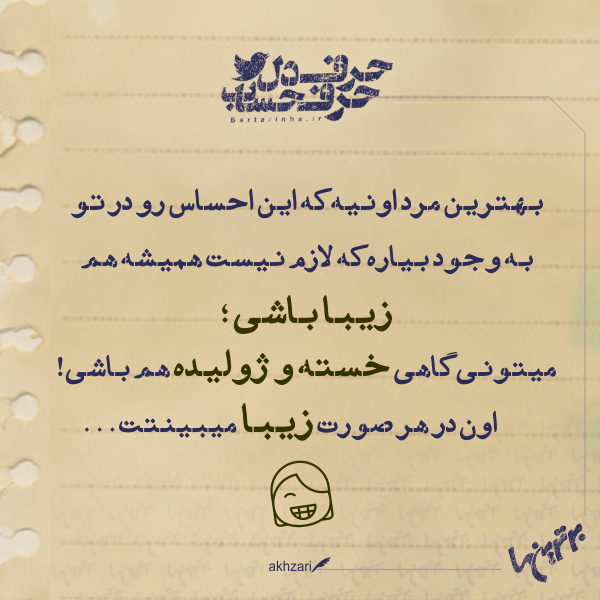 حرف دل
حرف حساب
Bartarinha.ir
بهترین مرد اونیه که این احساس رو در تو
به وجود بیاره که لازم نیست همیشه هم
زیبا باشی ؛
میتونی گاهی خسته و ژولیده هم باشی!
اون در هر صورت زیبا میبینتت...
akhzari
برترین ها